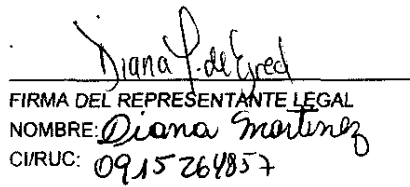 Diana Y. de
FIRMA DEL REPRESENTANTE LEGAL
NOMBRE: Diana Martinez
CI/RUC: 0915264857